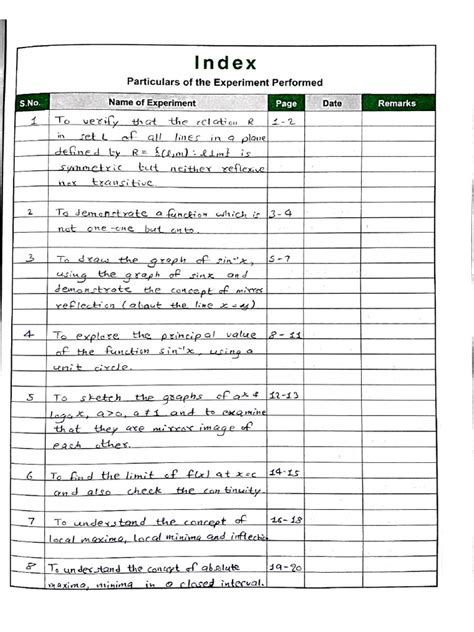 Index
Particulars of the Experiment Performed
S.No. Name of Experiment Page Date Remarks
1 To verify that the relation R 1-2
in set L of all lines in a plane
defined by R = {(l,m) : l⊥m} is
symmetric but neither reflexive
nor transitive.
2 To demonstrate a function which is 3-4
not one-one but onto.
3 To draw the graph of sin⁻¹x, 5-7
using the graph of sinx and
demonstrate the concept of mirror
reflection (about the line x=y)
4 To explore the principal value 8-11
of the function sin⁻¹x, using a
unit circle.
5 To sketch the graphs of aˣ & 12-13
logₐx, a>0, a≠1 and to examine
that they are mirror image of
each other.
6 To find the limit of f(x) at x=c 14-15
and also check the continuity.
7 To understand the concept of 16-18
local maxima, local minima and inflection
8 To understand the concept of absolute 19-20
maxima, minima in a closed interval.